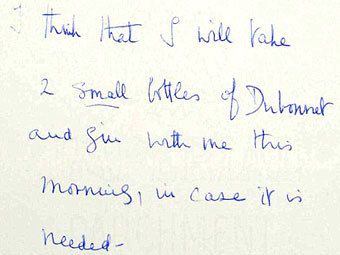 I think that I will take
2 small bottles of Dubonnet
and gin with me this
morning, in case it is
needed-